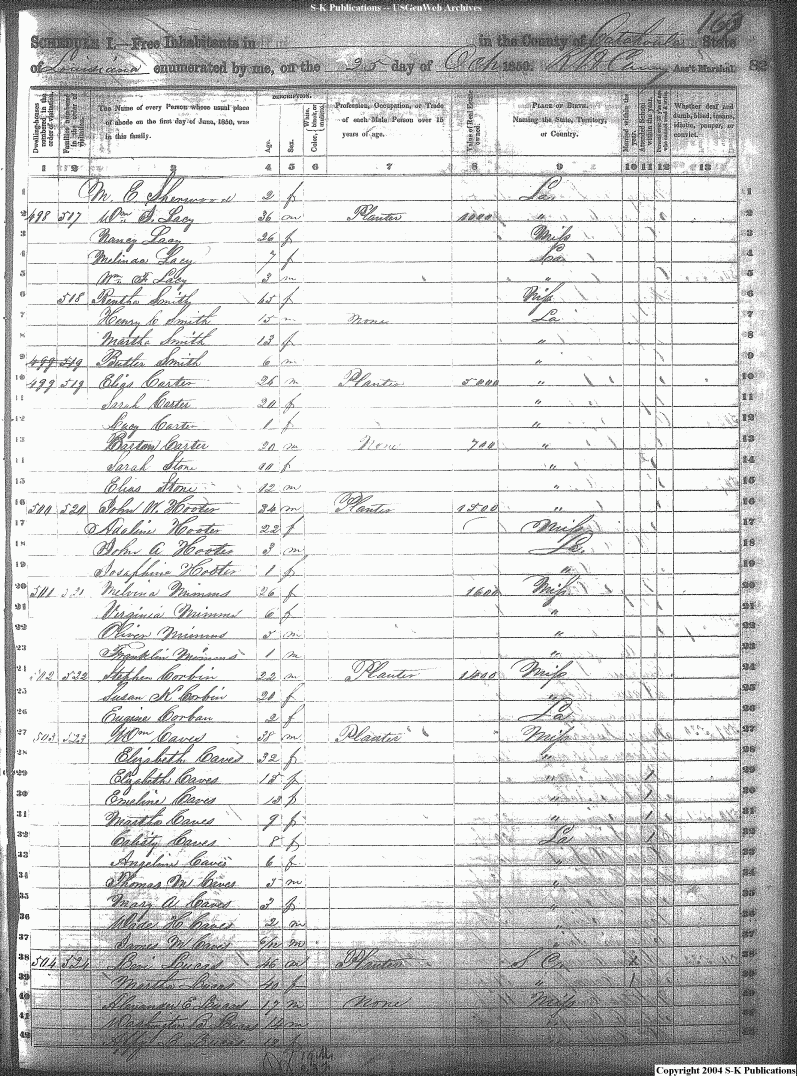 S-K Publications -- USGenWeb Archives
163
SCHEDULE I.—Free Inhabitants in in the County of Catahoula State
of Louisiana enumerated by me, on the 25 day of Oct 1850. Ass't Marshal. 82
DESCRIPTION.
Dwelling-houses numbered in the order of visitation.
Families numbered in the order of visitation.
The Name of every Person whose usual place of abode on the first day of June, 1850, was in this family.
Age.
Sex.
Color, White, black, or mulatto.
Profession, Occupation, or Trade of each Male Person over 15 years of age.
Value of Real Estate owned.
PLACE OF BIRTH. Naming the State, Territory, or Country.
Married within the year.
Attended School within the year.
Whether deaf and dumb, blind, insane, idiotic, pauper, or convict.
1 2 3 4 5 6 7 8 9 10 11 12 13
1 M. E. Sherwood 2 f La 1
2 498 517 Wm F. Lacy 36 m Planter 1000 " 2
3 Nancy Lacy 26 f Miss 3
4 Melinda Lacy 7 f La 4
5 Wm F Lacy 3 m " 5
6 518 Smith 65 f Miss 6
7 Henry C Smith 15 m None La 7
8 Martha Smith 13 f " 8
9 499 519 Butler Smith 6 m " 9
10 499 519 Elias Carter 26 m Planter 5000 " 10
11 Sarah Carter 20 f " 11
12 Lucy Carter 1 f " 12
13 Barton Carter 20 m None 700 " 13
14 Sarah Stone 10 f " 14
15 Elias Stone 12 m " 15
16 500 520 John W. Hooter 34 m Planter 1500 " 16
17 Adaline Hooter 22 f Miss 17
18 John A Hooter 3 m La. 18
19 Josephine Hooter 1 f " 19
20 501 521 Melvina Mimms 26 f 1600 Miss 20
21 Virginia Mimms 6 f " 21
22 Oliver Mimms 5 m " 22
23 Franklin Mimms 1 m " 23
24 502 522 Stephen Corbin 22 m Planter 1400 Miss 24
25 Susan K Corbin 20 f " 25
26 Eugine Corban 2 f La 26
27 503 523 Wm Caves 38 m Planter Miss 27
28 Elizabeth Caves 32 f " 28
29 Elizabeth Caves 15 f " 1 29
30 Emeline Caves 12 f " 1 30
31 Martha Caves 9 f " 1 31
32 Calisty Caves 8 f La 1 32
33 Angeline Caves 6 f " 33
34 Thomas M Caves 5 m " 34
35 Mary A Caves 3 f " 35
36 Wade H Caves 2 m " 36
37 James M Caves 6/12 m " 37
38 504 524 46 m Planter S Ca 38
39 Martha 40 f " 39
40 Alexander E 17 m None Miss 40
41 Washington B 14 m " 41
42 42
Copyright 2004 S-K Publications